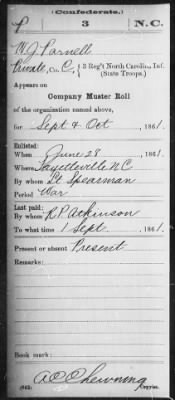 (Confederate.)
P 3 N.C.
W. J. Parnell
Private, Co. C, 3 Reg't North Carolina Inf.
(State Troops.)
Appears on
Company Muster Roll
of the organization named above,
for Sept & Oct, 1861.
Enlisted:
When June 28, 1861.
Where Fayetteville NC
By whom Lt Spearman
Period War
Last paid:
By whom R P Atkinson
To what time 1 Sept, 1861.
Present or absent Present
Remarks:
Book mark:
A C Chewning
(642) Copyist.